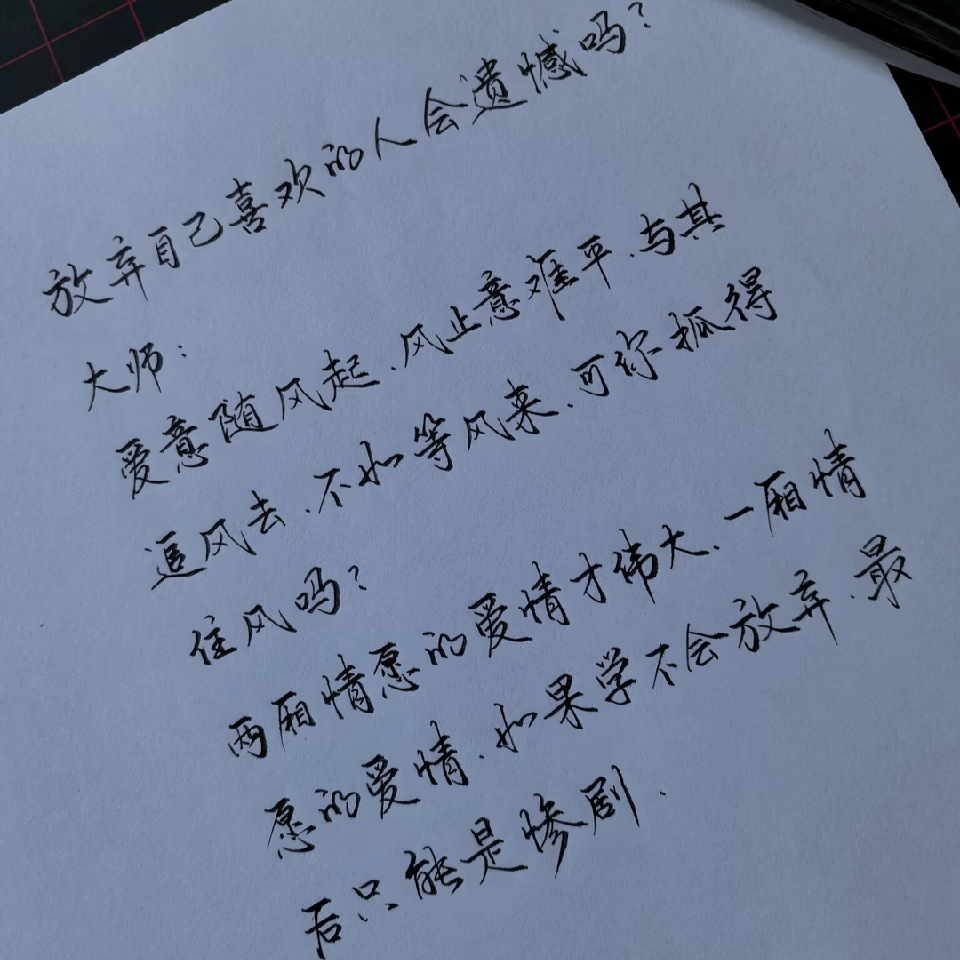 放弃自己喜欢的人会遗憾吗?
大师:
爱意随风起.风止意难平.与其
追风去.不如等风来.可你抓得
住风吗?
两厢情愿的爱情才伟大.一厢情
愿的爱情.如果学不会放弃.最
后只能是惨剧.